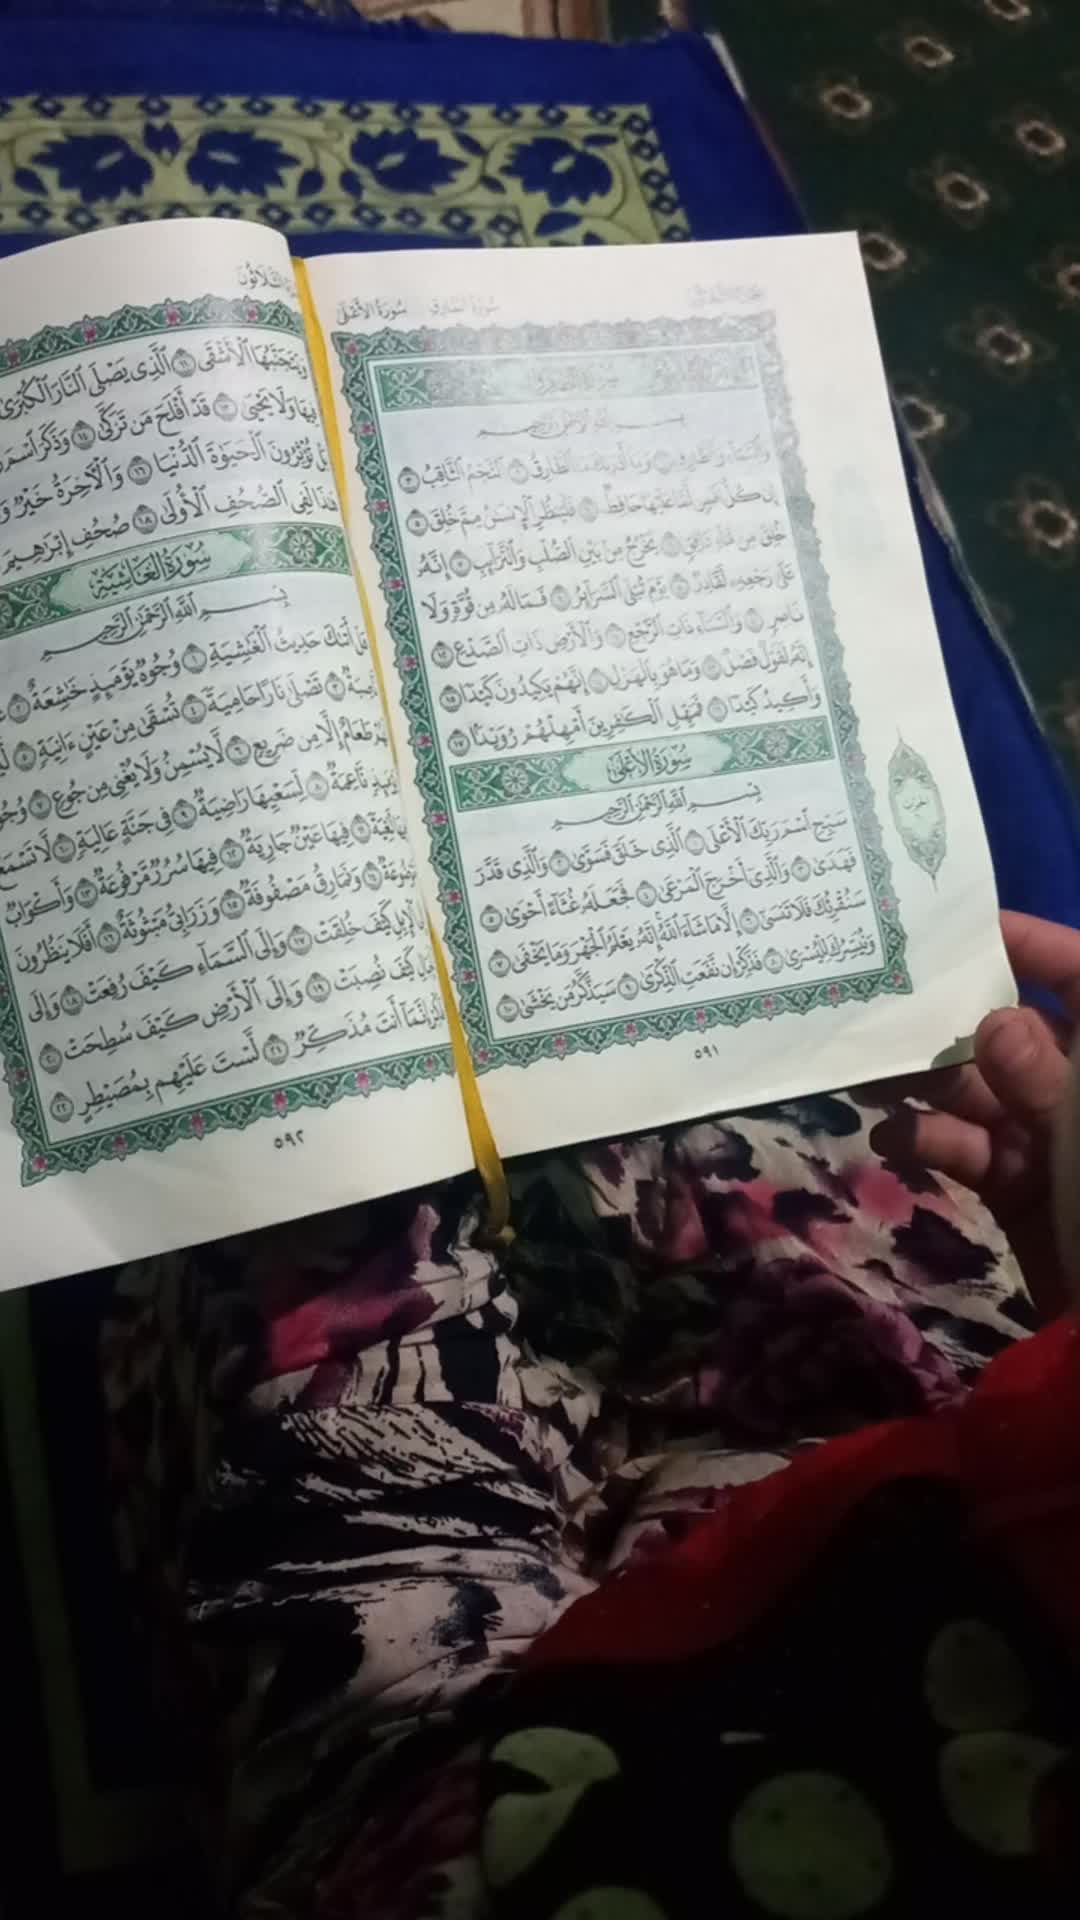 سُورَةُ الطَّارِقِ سُورَةُ الْأَعْلَىٰ
بِسْمِ اللَّهِ الرَّحْمَٰنِ الرَّحِيمِ
وَالسَّمَاءِ وَالطَّارِقِ ١ وَمَا أَدْرَىٰكَ مَا الطَّارِقُ ٢ النَّجْمُ الثَّاقِبُ ٣
إِن كُلُّ نَفْسٍ لَّمَّا عَلَيْهَا حَافِظٌ ٤ فَلْيَنظُرِ الْإِنسَٰنُ مِمَّ خُلِقَ ٥
خُلِقَ مِن مَّاءٍ دَافِقٍ ٦ يَخْرُجُ مِنۢ بَيْنِ الصُّلْبِ وَالتَّرَائِبِ ٧ إِنَّهُۥ
عَلَىٰ رَجْعِهِۦ لَقَادِرٌ ٨ يَوْمَ تُبْلَى السَّرَائِرُ ٩ فَمَا لَهُۥ مِن قُوَّةٍ وَلَا
نَاصِرٍ ١٠ وَالسَّمَاءِ ذَاتِ الرَّجْعِ ١١ وَالْأَرْضِ ذَاتِ الصَّدْعِ ١٢
إِنَّهُۥ لَقَوْلٌ فَصْلٌ ١٣ وَمَا هُوَ بِالْهَزْلِ ١٤ إِنَّهُمْ يَكِيدُونَ كَيْدًا ١٥
وَأَكِيدُ كَيْدًا ١٦ فَمَهِّلِ الْكَٰفِرِينَ أَمْهِلْهُمْ رُوَيْدًۢا ١٧
سُورَةُ الْأَعْلَىٰ
بِسْمِ اللَّهِ الرَّحْمَٰنِ الرَّحِيمِ
سَبِّحِ اسْمَ رَبِّكَ الْأَعْلَى ١ الَّذِى خَلَقَ فَسَوَّىٰ ٢ وَالَّذِى قَدَّرَ
فَهَدَىٰ ٣ وَالَّذِى أَخْرَجَ الْمَرْعَىٰ ٤ فَجَعَلَهُۥ غُثَاءً أَحْوَىٰ ٥
سَنُقْرِئُكَ فَلَا تَنسَىٰ ٦ إِلَّا مَا شَاءَ اللَّهُ إِنَّهُۥ يَعْلَمُ الْجَهْرَ وَمَا يَخْفَىٰ ٧
وَنُيَسِّرُكَ لِلْيُسْرَىٰ ٨ فَذَكِّرْ إِن نَّفَعَتِ الذِّكْرَىٰ ٩ سَيَذَّكَّرُ مَن يَخْشَىٰ ١٠
٥٩١
وَيَتَجَنَّبُهَا الْأَشْقَى ١١ الَّذِى يَصْلَى النَّارَ الْكُبْرَىٰ
فِيهَا وَلَا يَحْيَىٰ ١٣ قَدْ أَفْلَحَ مَن تَزَكَّىٰ ١٤ وَذَكَرَ اسْمَ
بَلْ تُؤْثِرُونَ الْحَيَوٰةَ الدُّنْيَا ١٦ وَالْآخِرَةُ خَيْرٌ
هَٰذَا لَفِى الصُّحُفِ الْأُولَىٰ ١٨ صُحُفِ إِبْرَٰهِيمَ
سُورَةُ الْغَاشِيَةِ
بِسْمِ اللَّهِ الرَّحْمَٰنِ الرَّحِيمِ
هَلْ أَتَىٰكَ حَدِيثُ الْغَٰشِيَةِ ١ وُجُوهٌ يَوْمَئِذٍ خَٰشِعَةٌ ٢
تَصْلَىٰ نَارًا حَامِيَةً ٤ تُسْقَىٰ مِنْ عَيْنٍ ءَانِيَةٍ ٥
لَهُمْ طَعَامٌ إِلَّا مِن ضَرِيعٍ ٦ لَّا يُسْمِنُ وَلَا يُغْنِى مِن جُوعٍ ٧
نَّاعِمَةٌ ٨ لِّسَعْيِهَا رَاضِيَةٌ ٩ فِى جَنَّةٍ عَالِيَةٍ ١٠ لَّا تَسْمَعُ
فِيهَا لَٰغِيَةً ١١ فِيهَا عَيْنٌ جَارِيَةٌ ١٢ فِيهَا سُرُرٌ مَّرْفُوعَةٌ ١٣ وَأَكْوَابٌ
مَّوْضُوعَةٌ ١٤ وَنَمَارِقُ مَصْفُوفَةٌ ١٥ وَزَرَابِىُّ مَبْثُوثَةٌ ١٦ أَفَلَا يَنظُرُونَ
الْإِبِلِ كَيْفَ خُلِقَتْ ١٧ وَإِلَى السَّمَاءِ كَيْفَ رُفِعَتْ ١٨ وَإِلَى
كَيْفَ نُصِبَتْ ١٩ وَإِلَى الْأَرْضِ كَيْفَ سُطِحَتْ ٢٠
إِنَّمَا أَنتَ مُذَكِّرٌ ٢١ لَّسْتَ عَلَيْهِم بِمُصَيْطِرٍ ٢٢
٥٩٢